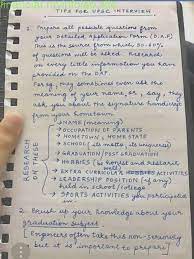 TIPS FOR UPSC INTERVIEW
1. Prepare all possible questions from
your Detailed Application Form (D.A.F)
This is the source from which 50-60%
of questions will be asked. Research
on every little information you have
provided on the DAF.
Eg, may sometimes even ask the
meaning of your name, or, say, they
ask you about the signature handicraft
from your hometown
RESEARCH ON THESE
→ NAME (meaning)
→ OCCUPATION OF PARENTS
→ HOMETOWN, HOME STATE
→ SCHOOL (its motto, its uniqueness)
→ GRADUATION/POST GRADUATION
→ HOBBIES (be honest and research well)
→ EXTRA CURRICULAR ACTIVITIES
→ LEADERSHIP POSITION (if any)
held in school/college
→ SPORTS ACTIVITIES you participated in
2. Brush up your knowledge about your
graduation subject
[Engineers often take this non-seriously
but it is important to prepare]